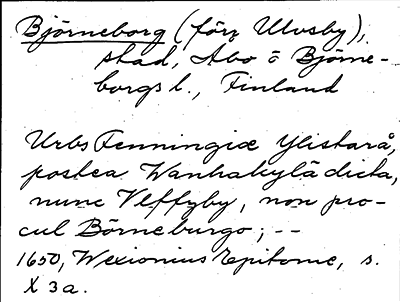 Björneborg (förr Ulvsby),
stad, Åbo o Björne-
borgs l., Finland
Urbs Fenningiæ Ylistarå,
postea Wanhakylä dicta,
nunc Vlffzby, non pro-
cul Börneburgo; --
1650, Wexionius Epitome, s.
X 3a.